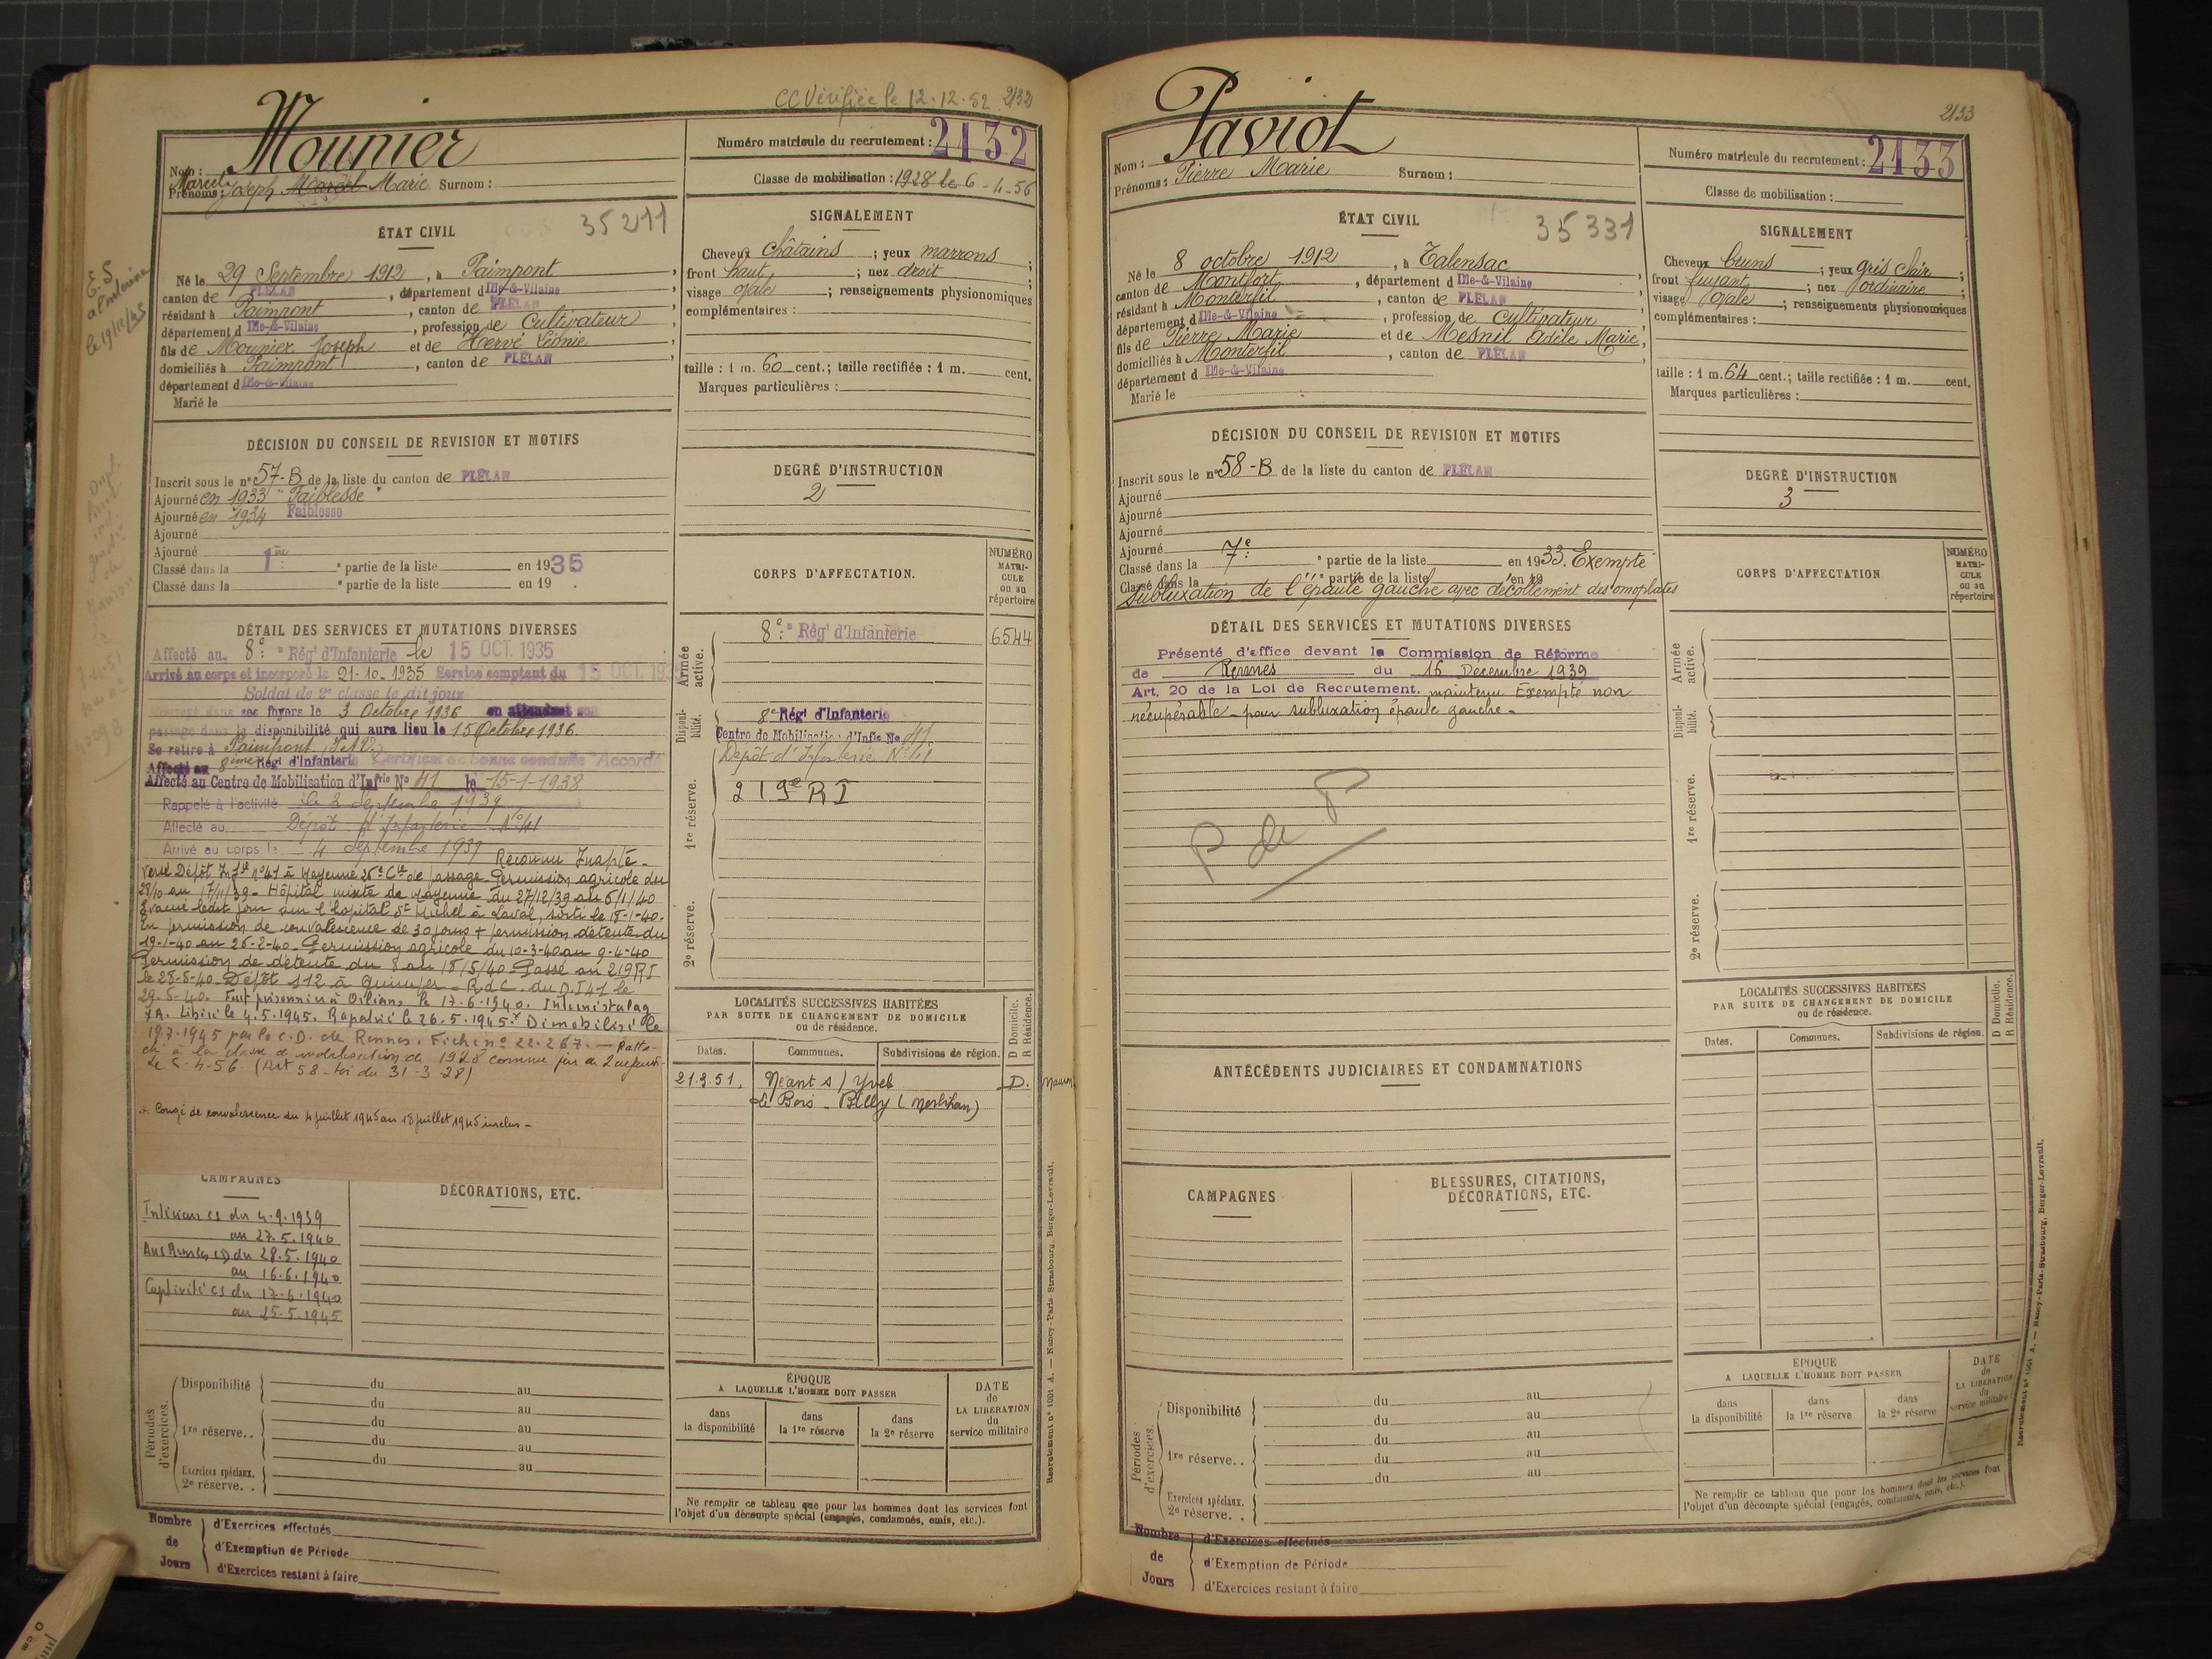 CC Vérifiée le 12.12.52 2132
Mounier
Nom :
Numéro matricule du recrutement : 2132
Marcel
Prénoms : Joseph Marcel Marie Surnom :
Classe de mobilisation : 1928 le 6-4-56
ÉTAT CIVIL
35211
Né le 29 Septembre 1912, à Paimpont,
canton de PLÉLAN, département d Ille-&-Vilaine,
résidant à Paimpont, canton de PLÉLAN,
département d Ille-&-Vilaine, profession de Cultivateur,
fils de Mounier Joseph et de Hervé Léonie
domiciliés à Paimpont, canton de PLÉLAN,
département d Ille-&-Vilaine
Marié le
E.S.
le 19/12/45
SIGNALEMENT
Cheveux châtains ; yeux marrons ;
front haut ; nez droit ;
visage ovale ; renseignements physionomiques
complémentaires :
taille : 1 m. 60 cent.; taille rectifiée : 1 m. cent.
Marques particulières :
DÉCISION DU CONSEIL DE REVISION ET MOTIFS
Inscrit sous le n° 57-B de la liste du canton de PLÉLAN
Ajourné en 1933 "Faiblesse"
Ajourné en 1934 Faiblesse
Ajourné
Ajourné
Classé dans la 1re partie de la liste en 1935
Classé dans la e partie de la liste en 19 .
DEGRÉ D'INSTRUCTION
2
DÉTAIL DES SERVICES ET MUTATIONS DIVERSES
Affecté au 8e Régt d'Infanterie le 15 OCT. 1935
Arrivé au corps et incorporé le 21-10-1935 Service comptant du 15 OCT. 1935
Soldat de 2e classe le dit jour
dans ses foyers le 3 Octobre 1936 en attendant son
passage dans la disponibilité qui aura lieu le 15 Octobre 1936.
Se retire à Paimpont (I&V.)
Affecté au 8ème Régt d'Infanterie Certificat de bonne conduite "Accordé"
Affecté au Centre de Mobilisation d'Infrie No 41 le 15-1-1938
Rappelé à l'activité le 2 Septembre 1939
Affecté au Dépôt d'Infanterie No 41
Arrivé au corps le 4 Septembre 1939 Reconnu Inapte -
Versé Dépôt Inf. n°41 à Mayenne 25e Cie de passage Permission agricole du
28/10 au 17/11/39 - Hôpital mixte de Mayenne du 27/12/39 au 6/1/40
Evacué ledit jour sur l'hôpital St Michel à Laval, sorti le 18-1-40.
En permission de convalescence de 30 jours + permission détente du
19-1-40 au 26-2-40 - Permission agricole du 10-3-40 au 9-4-40
Permission de détente du 8 au 18/5/40 - Passé au 219 RI
le 28-5-40. Dépôt 112 à Quimper - R.d.C. du D.I 41 le
29-5-40. Fait prisonnier à Orléans le 17.6.1940. Interné stalag
XA. Libéré le 4.5.1945. Rapatrié le 26.5.1945.+ Démobilisé le
19.7.1945 par le C.D. de Rennes. Fiche n° 22.267. - Ratta-
ché à la classe de mobilisation de 1928 comme père de 2 enfants
le 6-4-56. (Art 58 - loi du 31-3-28)
+ Congé de convalescence du 4 juillet 1945 au 18 juillet 1945 inclus -
CORPS D'AFFECTATION.
NUMÉRO MATRICULE ou au répertoire
Armée active.
8e Régt d'Infanterie 6544
Disponibilité.
8e Régt d'Infanterie
Centre de Mobilisation d'Infie No 41
Dépôt d'Infanterie N°41
1re réserve.
219e RI
2e réserve.
LOCALITÉS SUCCESSIVES HABITÉES
PAR SUITE DE CHANGEMENT DE DOMICILE
ou de résidence.
D Domicile.
R Résidence.
Dates. Communes. Subdivisions de région.
21.3.51. Néant s/ Yvel D.
Le Bois - Billy (Morbihan)
CAMPAGNES
Intérieur cs du 4.9.1939
au 27.5.1940
Aux Armées CD du 28.5.1940
au 16.6.1940
Captivité cs du 17.6.1940
au 25.5.1945
DÉCORATIONS, ETC.
Périodes d'exercices.
Disponibilité du au
du au
1re réserve. . du au
du au
du au
Exercices spéciaux.
2e réserve. .
ÉPOQUE
A LAQUELLE L'HOMME DOIT PASSER
dans la disponibilité
dans la 1re réserve
dans la 2e réserve
DATE de LA LIBÉRATION du service militaire
Ne remplir ce tableau que pour les hommes dont les services font
l'objet d'un décompte spécial (engagés, condamnés, omis, etc.).
Nombre de Jours
d'Exercices effectués
d'Exemption de Période
d'Exercices restant à faire
Recrutement n° 1001 A. — Nancy-Paris-Strasbourg, Berger-Levrault.
2133
Paviot
Nom :
Numéro matricule du recrutement : 2133
Prénoms : Pierre Marie Surnom :
Classe de mobilisation :
ÉTAT CIVIL
35331
Né le 8 octobre 1912, à Talensac,
canton de Montfort, département d Ille-&-Vilaine
résidant à Monterfil, canton de PLÉLAN
département d Ille-&-Vilaine, profession de Cultivateur
fils de Pierre Marie et de Mesnil Adèle Marie,
domiciliés à Monterfil, canton de PLÉLAN,
département d Ille-&-Vilaine
Marié le
SIGNALEMENT
Cheveux bruns ; yeux gris clair ;
front fuyant ; nez ordinaire ;
visage ovale ; renseignements physionomiques
complémentaires :
taille : 1 m. 64 cent.; taille rectifiée : 1 m. cent.
Marques particulières :
DÉCISION DU CONSEIL DE REVISION ET MOTIFS
Inscrit sous le n° 58-B de la liste du canton de PLÉLAN
Ajourné
Ajourné
Ajourné
Ajourné
Classé dans la 7e partie de la liste en 1933. Exempté
Classé dans la e partie de la liste en 19
Subluxation de l'épaule gauche avec décollement des omoplates
DEGRÉ D'INSTRUCTION
3
DÉTAIL DES SERVICES ET MUTATIONS DIVERSES
Présenté d'office devant la Commission de Réforme
de Rennes du 16 Décembre 1939
Art. 20 de la Loi de Recrutement. maintenu Exempté non
récupérable - pour subluxation épaule gauche -
P de P
CORPS D'AFFECTATION
NUMÉRO MATRICULE ou au répertoire
Armée active.
Disponibilité.
1re réserve.
2e réserve.
ANTÉCÉDENTS JUDICIAIRES ET CONDAMNATIONS
LOCALITÉS SUCCESSIVES HABITÉES
PAR SUITE DE CHANGEMENT DE DOMICILE
ou de résidence.
D Domicile.
R Résidence.
Dates. Communes. Subdivisions de région.
CAMPAGNES
BLESSURES, CITATIONS,
DÉCORATIONS, ETC.
Périodes d'exercices.
Disponibilité du au
du au
1re réserve. . du au
du au
du au
Exercices spéciaux.
2e réserve. .
ÉPOQUE
A LAQUELLE L'HOMME DOIT PASSER
dans la disponibilité
dans la 1re réserve
dans la 2e réserve
DATE de LA LIBÉRATION du service militaire
Ne remplir ce tableau que pour les hommes dont les services font
l'objet d'un décompte spécial (engagés, condamnés, omis, etc.).
Nombre de Jours
d'Exercices effectués
d'Exemption de Période
d'Exercices restant à faire
Recrutement n° 1001 A. — Nancy-Paris-Strasbourg, Berger-Levrault.
0 cm